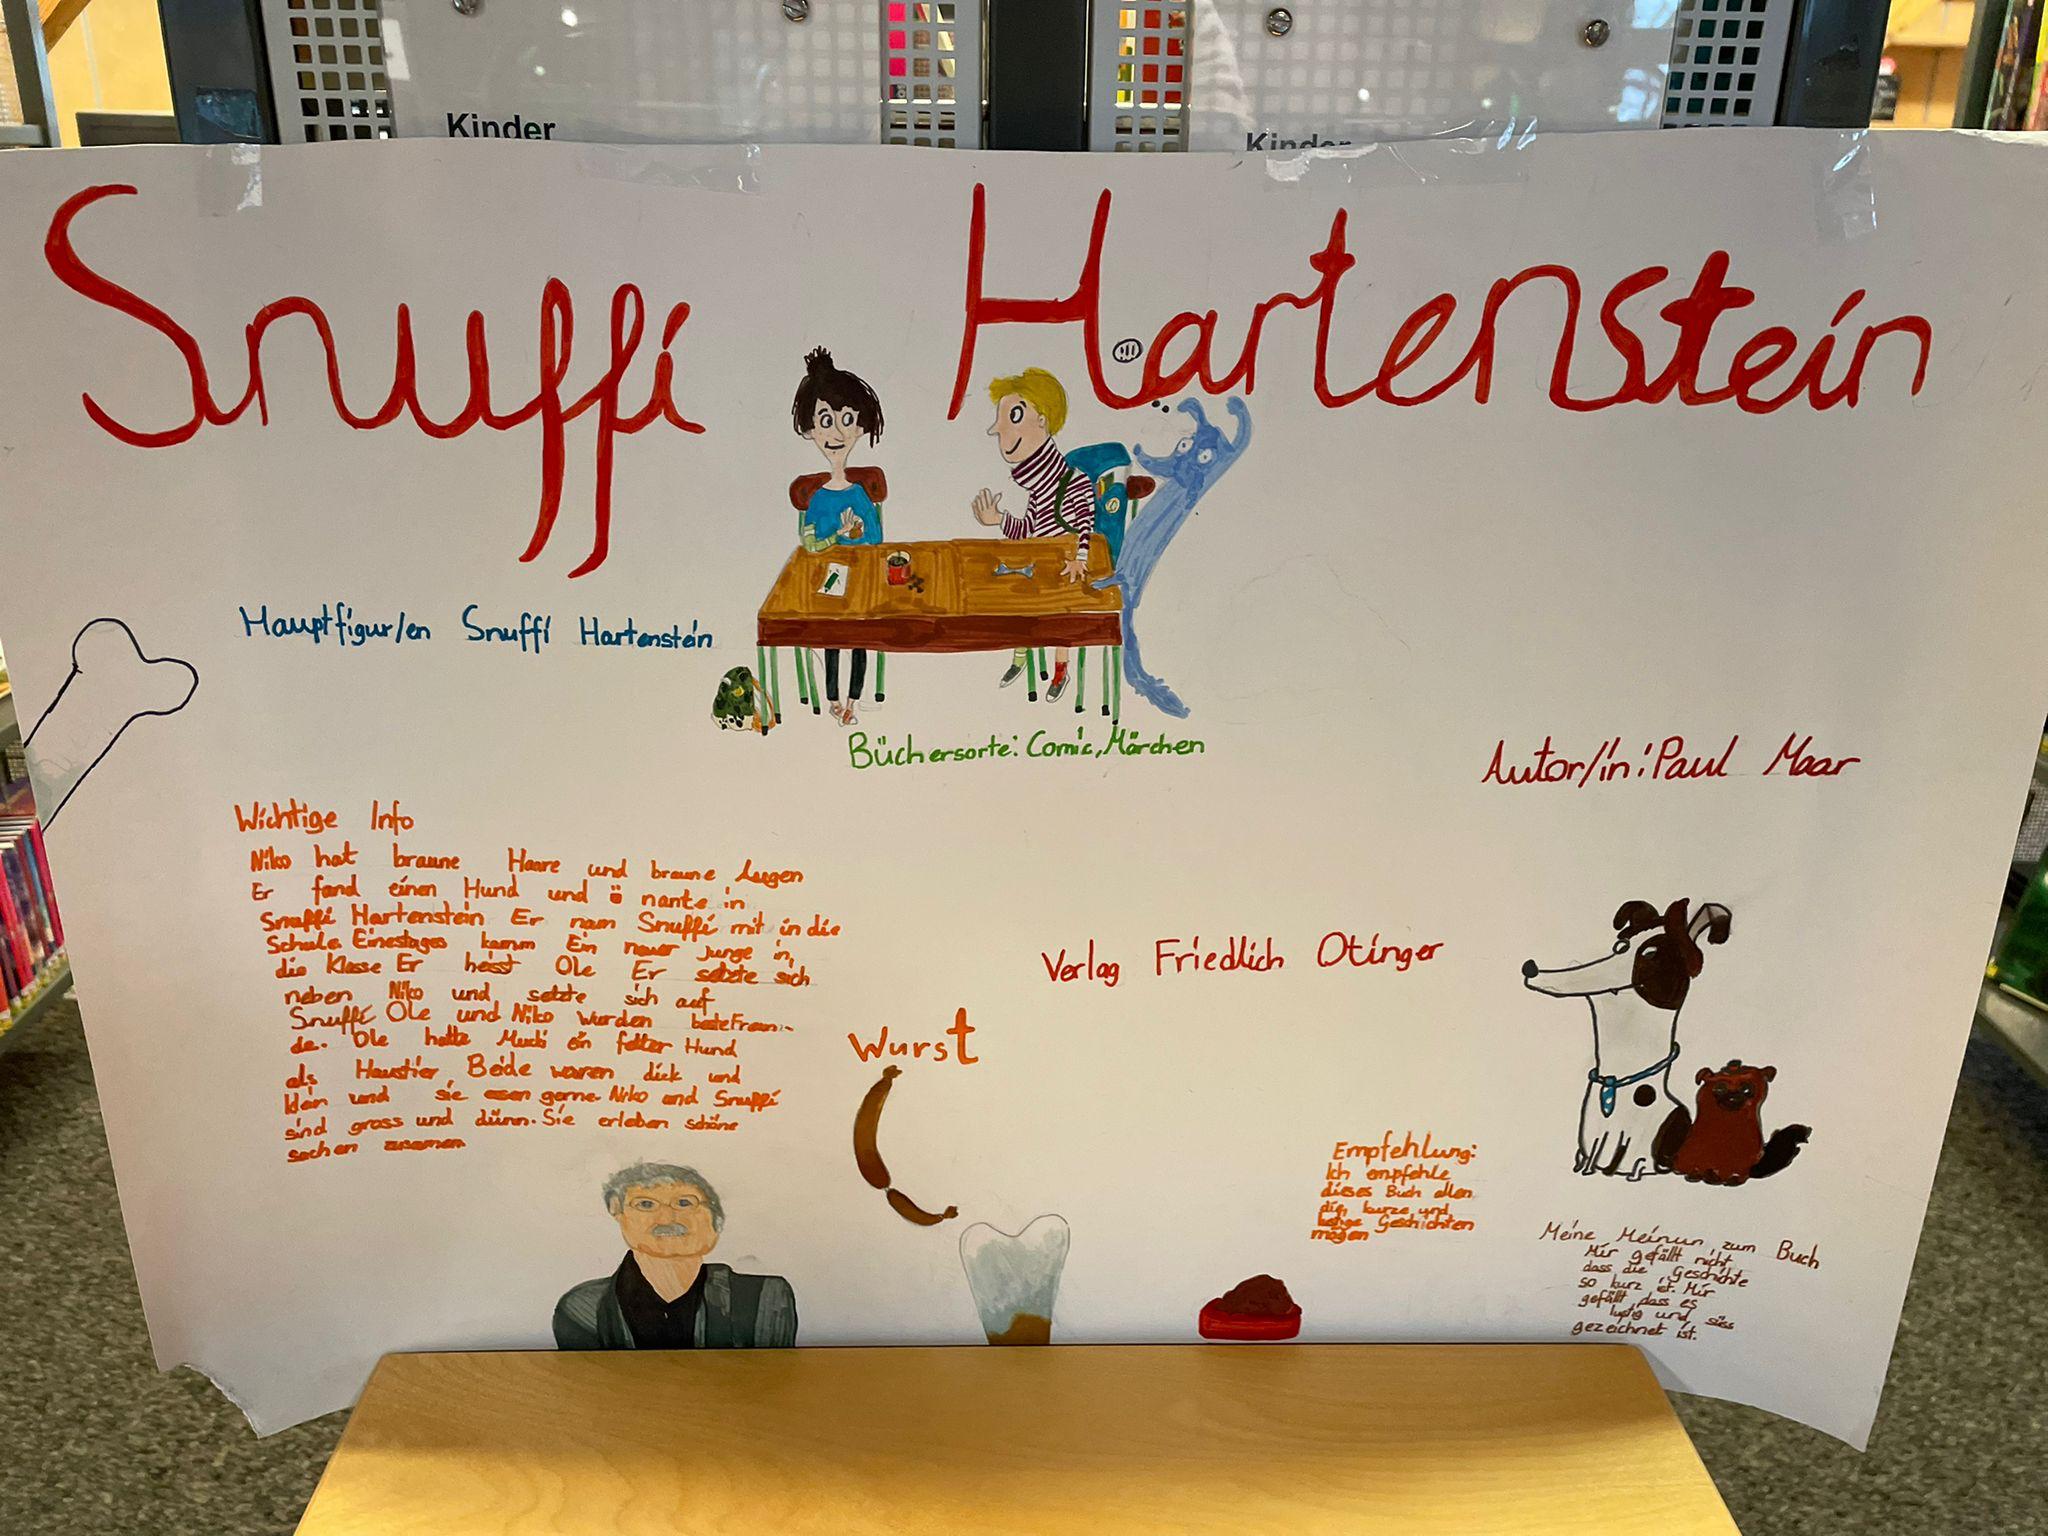 Kinder
Kinder
Snuffi Hartenstein
Hauptfigur/en Snuffi Hartenstein
Büchersorte: Comic, Märchen
Autor/in: Paul Maar
Wichtige Info
Niko hat braune Haare und braune Augen
Er fand einen Hund und ö nante in
Snuffi Hartenstein Er nam Snuffi mit in die
Schule Einestages kamm Ein neuer junge in,
die Klasse Er heisst Ole Er setzte sich
neben Niko und setzte sich auf
Snuffi Ole und Niko wurden beste Freun-
de. Ole hatte Mucki ein fetter Hund
als Haustier Beide waren dick und
klein und sie essen gerne Niko und Snuffi
sind gross und dünn. Sie erleben schöne
sachen zusamen
Verlag Friedlich Otinger
Wurst
Empfehlung:
Ich empfehle
dieses Buch allen
die kurze und
lustige Geschichten
mögen
Meine Meinun zum Buch
Mir gefällt nicht
dass die Geschichte
so kurz ist. Mir
gefällt dass es
lustig und süss
gezeichnet ist.